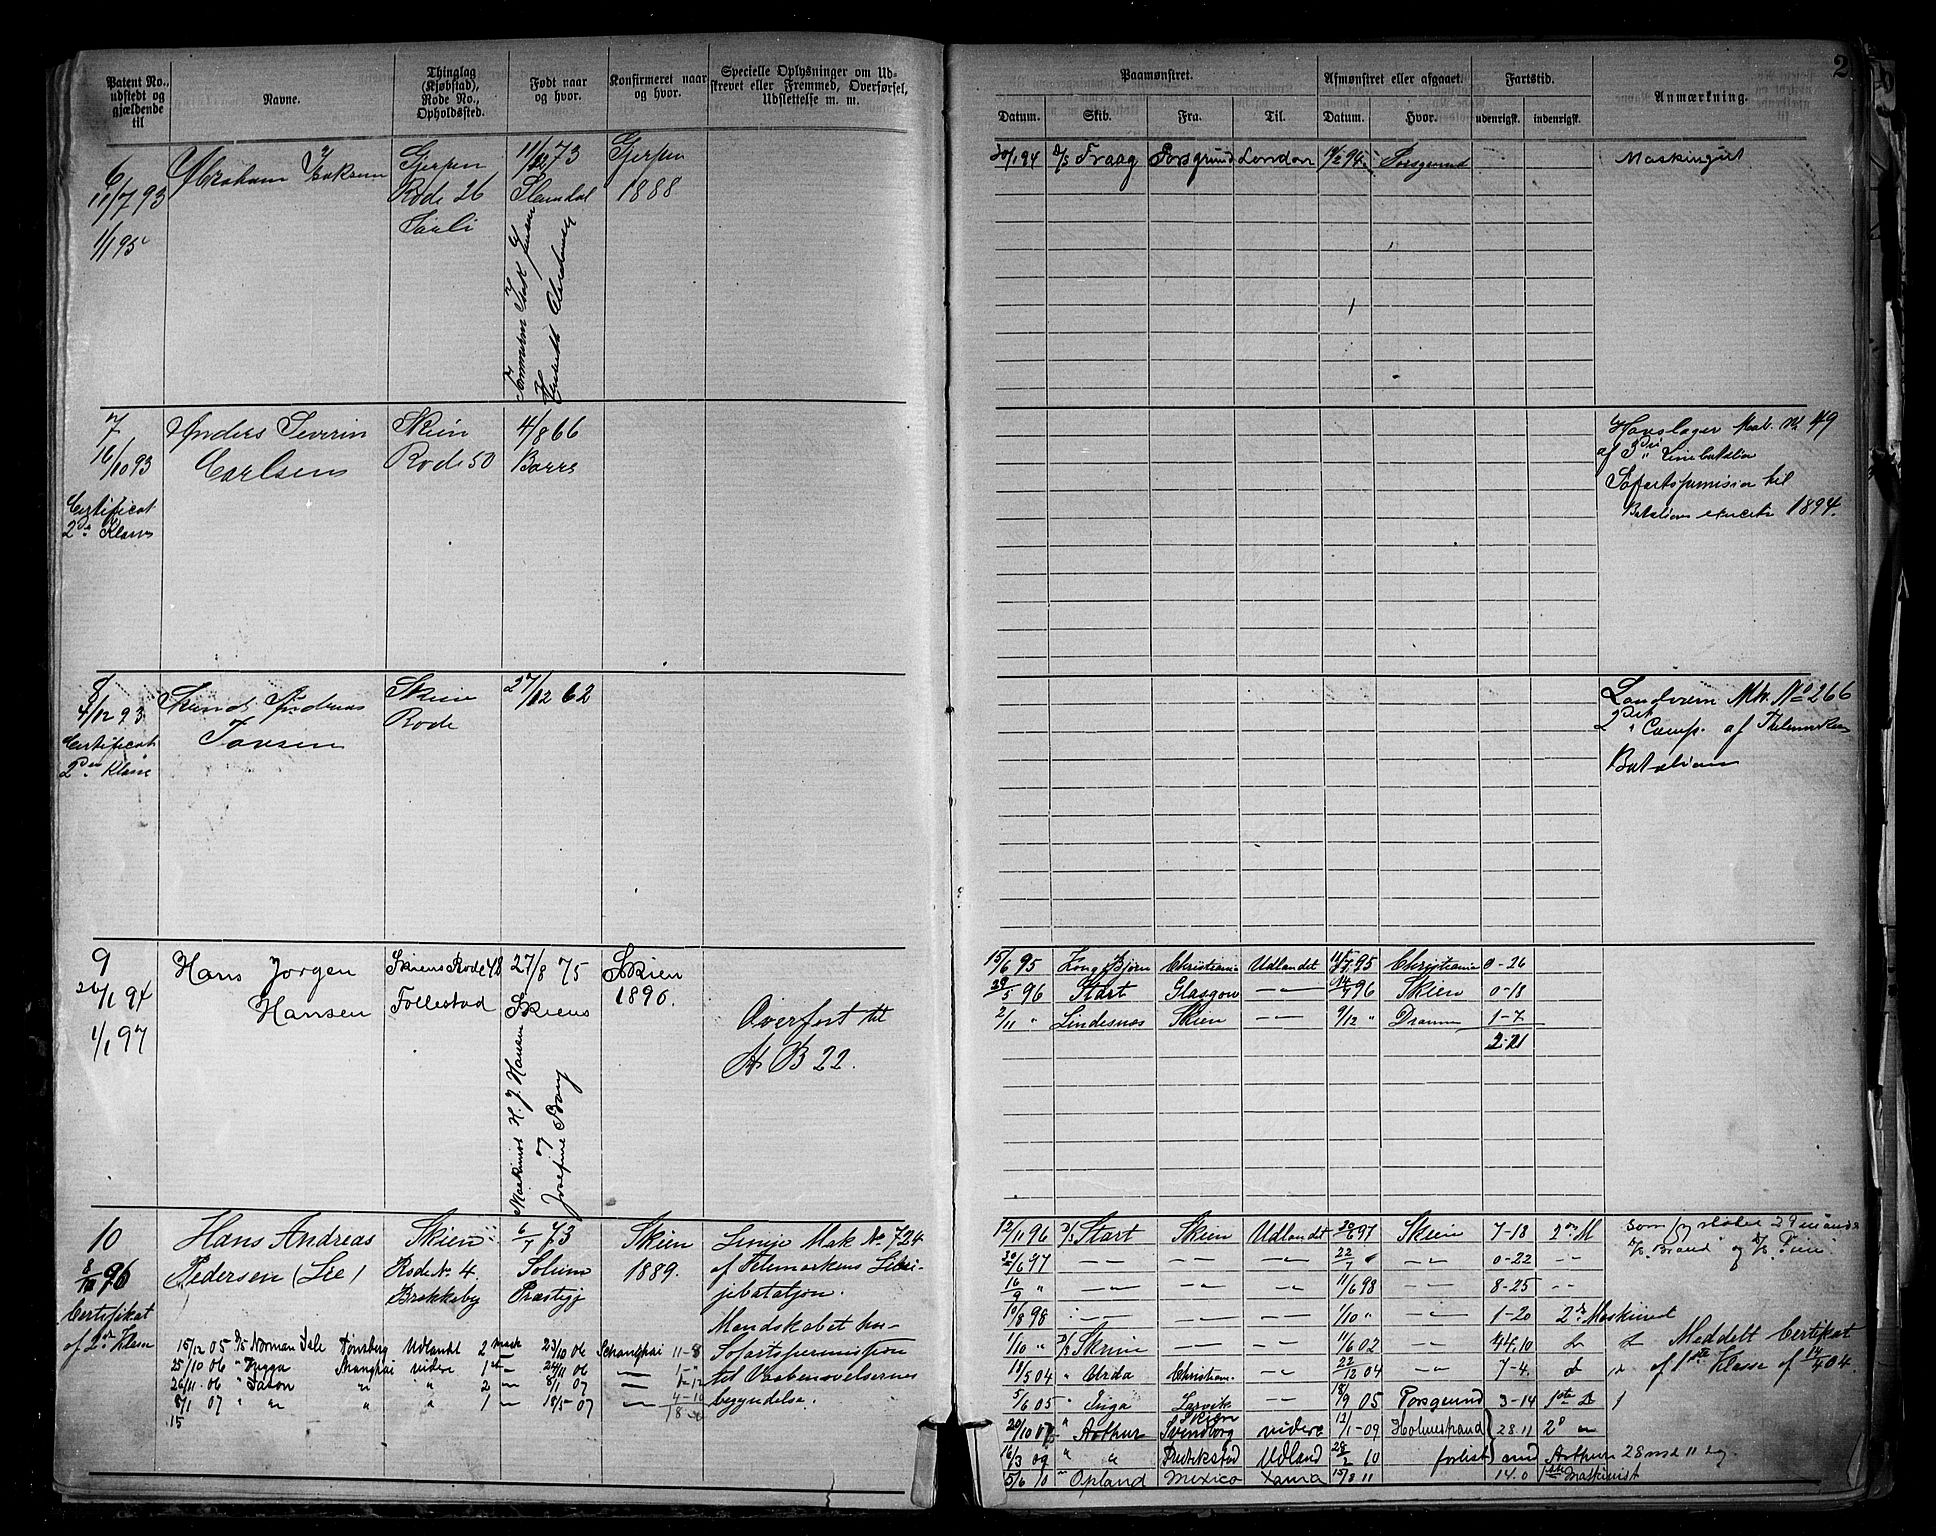 Patent No., udstedt og gjældende til
Navne.
Thinglag (Kjøbstad), Rode No., Opholdssted.
Født naar og hvor.
Konfirmeret naar og hvor.
Specielle Oplysninger om Udskrevet eller Fremmed, Overførsel, Udslettelse m. m.
Paamønstret.
Afmønstret eller afgaaet.
Fartstid.
Anmærkning.
2
Datum.
Skib.
Fra.
Til.
Datum.
Hvor.
udenrigsk.
indenrigsk.
6
11/7 93
1/1 95
Abraham Isaksen
Gjerpen
Rode 26
11/12 73
Gjerpen
1888
30/1 94 D/S Traag Porsgrund London 94 Porsgrund
Maskingut
7
16/10 93
Certificat
2den Klasse
Anders Severin
Carlsen
Skien
Rode 50
4/8 66
Borre
Haveslager Mak. No 49
1894.
8
4/12 93
Certificat
2den Klasse
Knud Andreas
Jansen
Skien
Rode
27/12 62
Landværn Mk. No 266
2det Comp. af Thelemarkens
Bataljon
9
26/1 94
1/1 97
Hans Jørgen
Hansen
Skiens Rode 48
Follestad
27/8 75
Skiens
Maskinist H. J. Hansen
Josefine Bang
Skien
1890.
Overført til
A. B 22.
15/6 95 Kong Bjørn Christiania Udlandet 95 Christiania 0-26
29/5 96 Start Glasgow -"- 96 Skien 0-18
2/11 " Lindesnæs Skien -"- 9/12 " Dramm 1-7
2-21
10
8/10 96
Certifikat
af 2den Klasse
Hans Andreas
Pedersen (Lie)
Skien
Rode No 4.
Brekkeby
6/7 73
Solum
Præstegj
Skien
1889.
Linje Mak No 724
af Telemarkens Linie-
jebataljon.
Mandskabet har
Søfartspermission
til Vaabenøvelsernes
begyndelse.
15/12 05 D/S Norman Isle Tønsberg Udlandt 2 mask 23/10 06 Schanghai 11-8
25/10 06 " Hygga Shanghai videre 1ste -"- 24/11 06 -"- 1-"
26/11 06 " Jason " " 2 -"- 8/1 07 -"- 1-12
8/1 07 " " " " 1 -"- 18/5 07 -"- 4-10
15
12/11 96 D/S Start Skien Udlandet 20/6 97 Skien 7-18 2den M
30/6 97 -"- -"- -"- 22/7 " -"- 0-22 -"-
16/9 " -"- -"- -"- 11/6 98 -"- 8-25 -"-
10/8 98 -"- -"- -"- 1/10 " -"- 1-20 2den Maskinist
1/10 " D/S Skien -"- -"- 11/6 02 -"- 44,10
18/5 04 " Alrda Christian. -"- 22/12 04 -"- 7-4.
5/6 05 " Inga Larvik -"- 18/9 05 Porsgrund 3-14 1ste
20/10 07 " Arthur Skien Svendborg videre 12/1-09 Holmestrand 28.11 2d
16/3 09 " " Fredrikstad Udland 28/2 10 forlist ind Arthur 28 md 11 dg.
5/6 10 " Opland Mexico 15/8 11 14.0 1ste Maskinist
Meddelt Certifikat
af 1ste Klasse af 14/9 04.